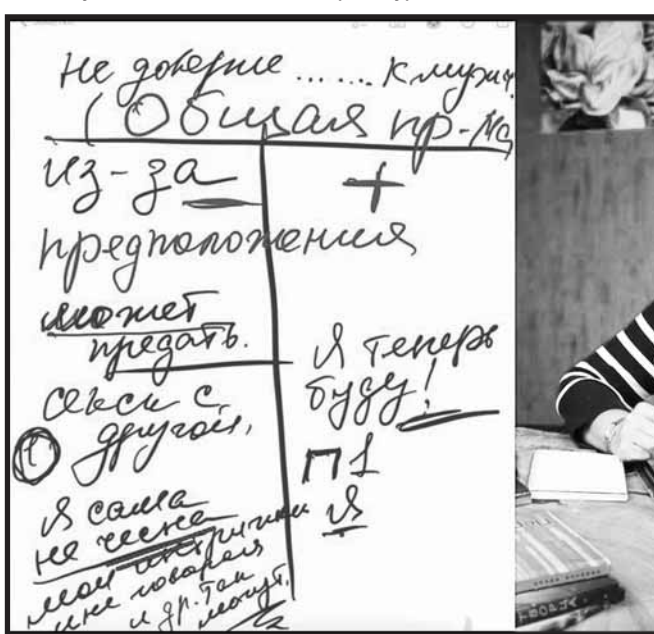 Не доверие ....... К мужч.
(Общая пр-ма
из-за +
предположения
может
предать.
секси с
① другой,
Я сама
не честна
мои интрижки
мне говорят
и др. так
могут.
Я теперь
буду!
П1
Я
ТВОРЦА